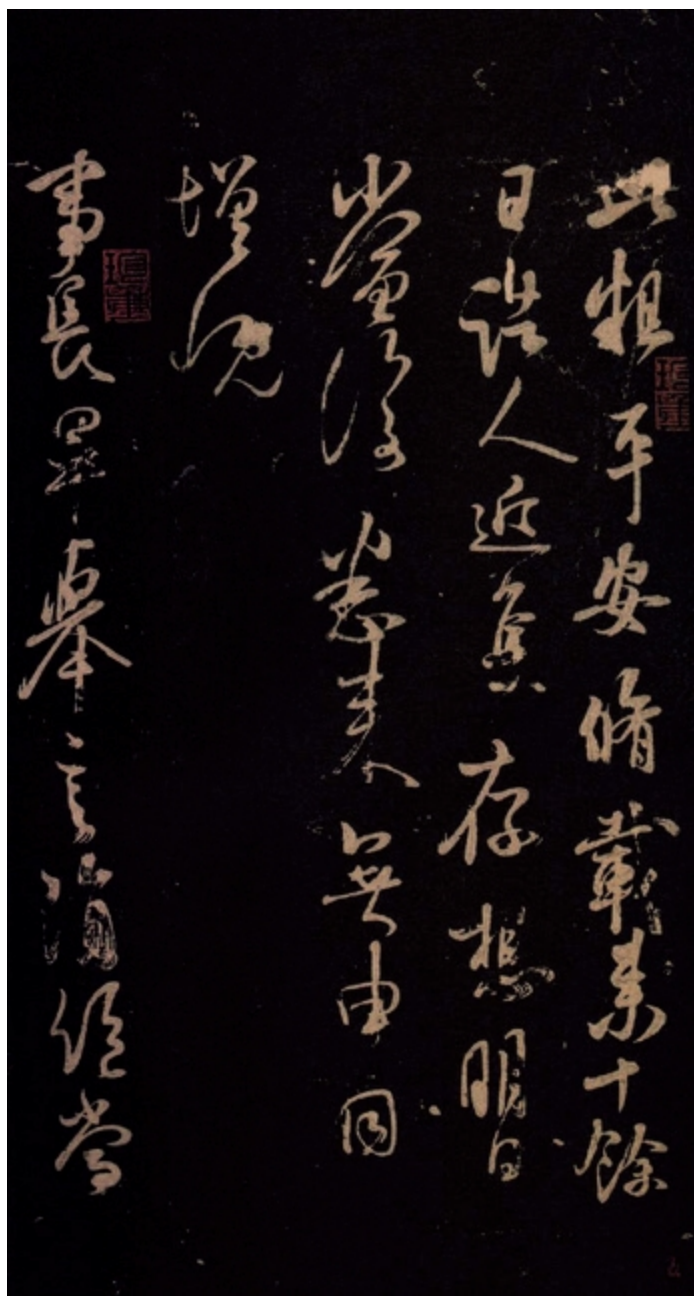 此粗平安脩載来十餘
日諸人近集存想明日
當復悉来無由同
增慨
事長 舉